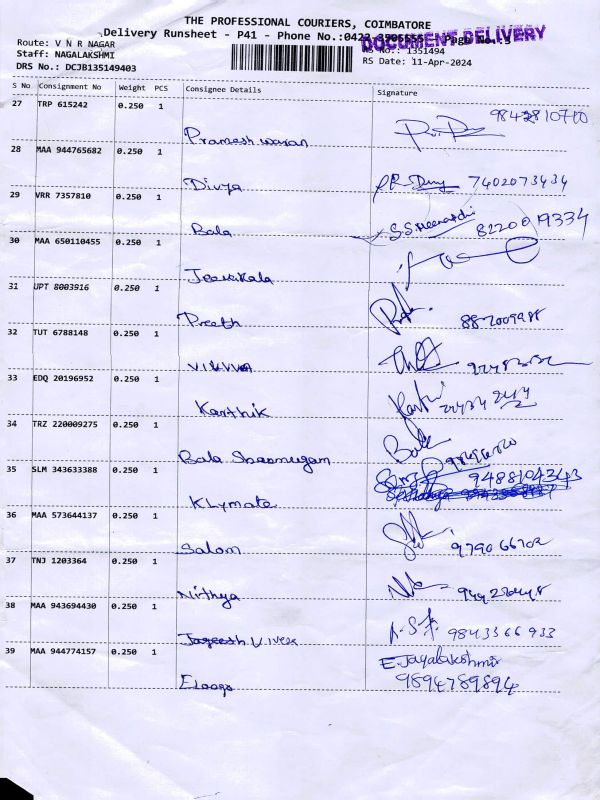 THE PROFESSIONAL COURIERS, COIMBATORE
Delivery Runsheet - P41 - Phone No.:0422-3505555 Page No.:3
DOCUMENT DELIVERY
Route: V N R NAGAR
RS No.: 1351494
Staff: NAGALAKSHMI
RS Date: 11-Apr-2024
DRS No.: DCJB135149403
S No Consignment No Weight PCS Consignee Details Signature
27 TRP 615242 0.250 1
Prameshwaran
28 MAA 944765682 0.250 1
Divya 7402073434
29 VRR 7357810 0.250 1
Bala 8220019334
30 MAA 650110455 0.250 1
31 UPT 8003916 0.250 1
Preeth
32 TUT 6788148 0.250 1
33 EDQ 20196952 0.250 1
Karthik
34 TRZ 220009275 0.250 1
Bala Shanmugam
35 SLM 343633388 0.250 1
9488104343
Klymate
36 MAA 573644137 0.250 1
Salom
37 TNJ 1203364 0.250 1
Nithya
38 MAA 943694430 0.250 1
9843366933
39 MAA 944774157 0.250 1
E. Jayalakshmi
9894789894